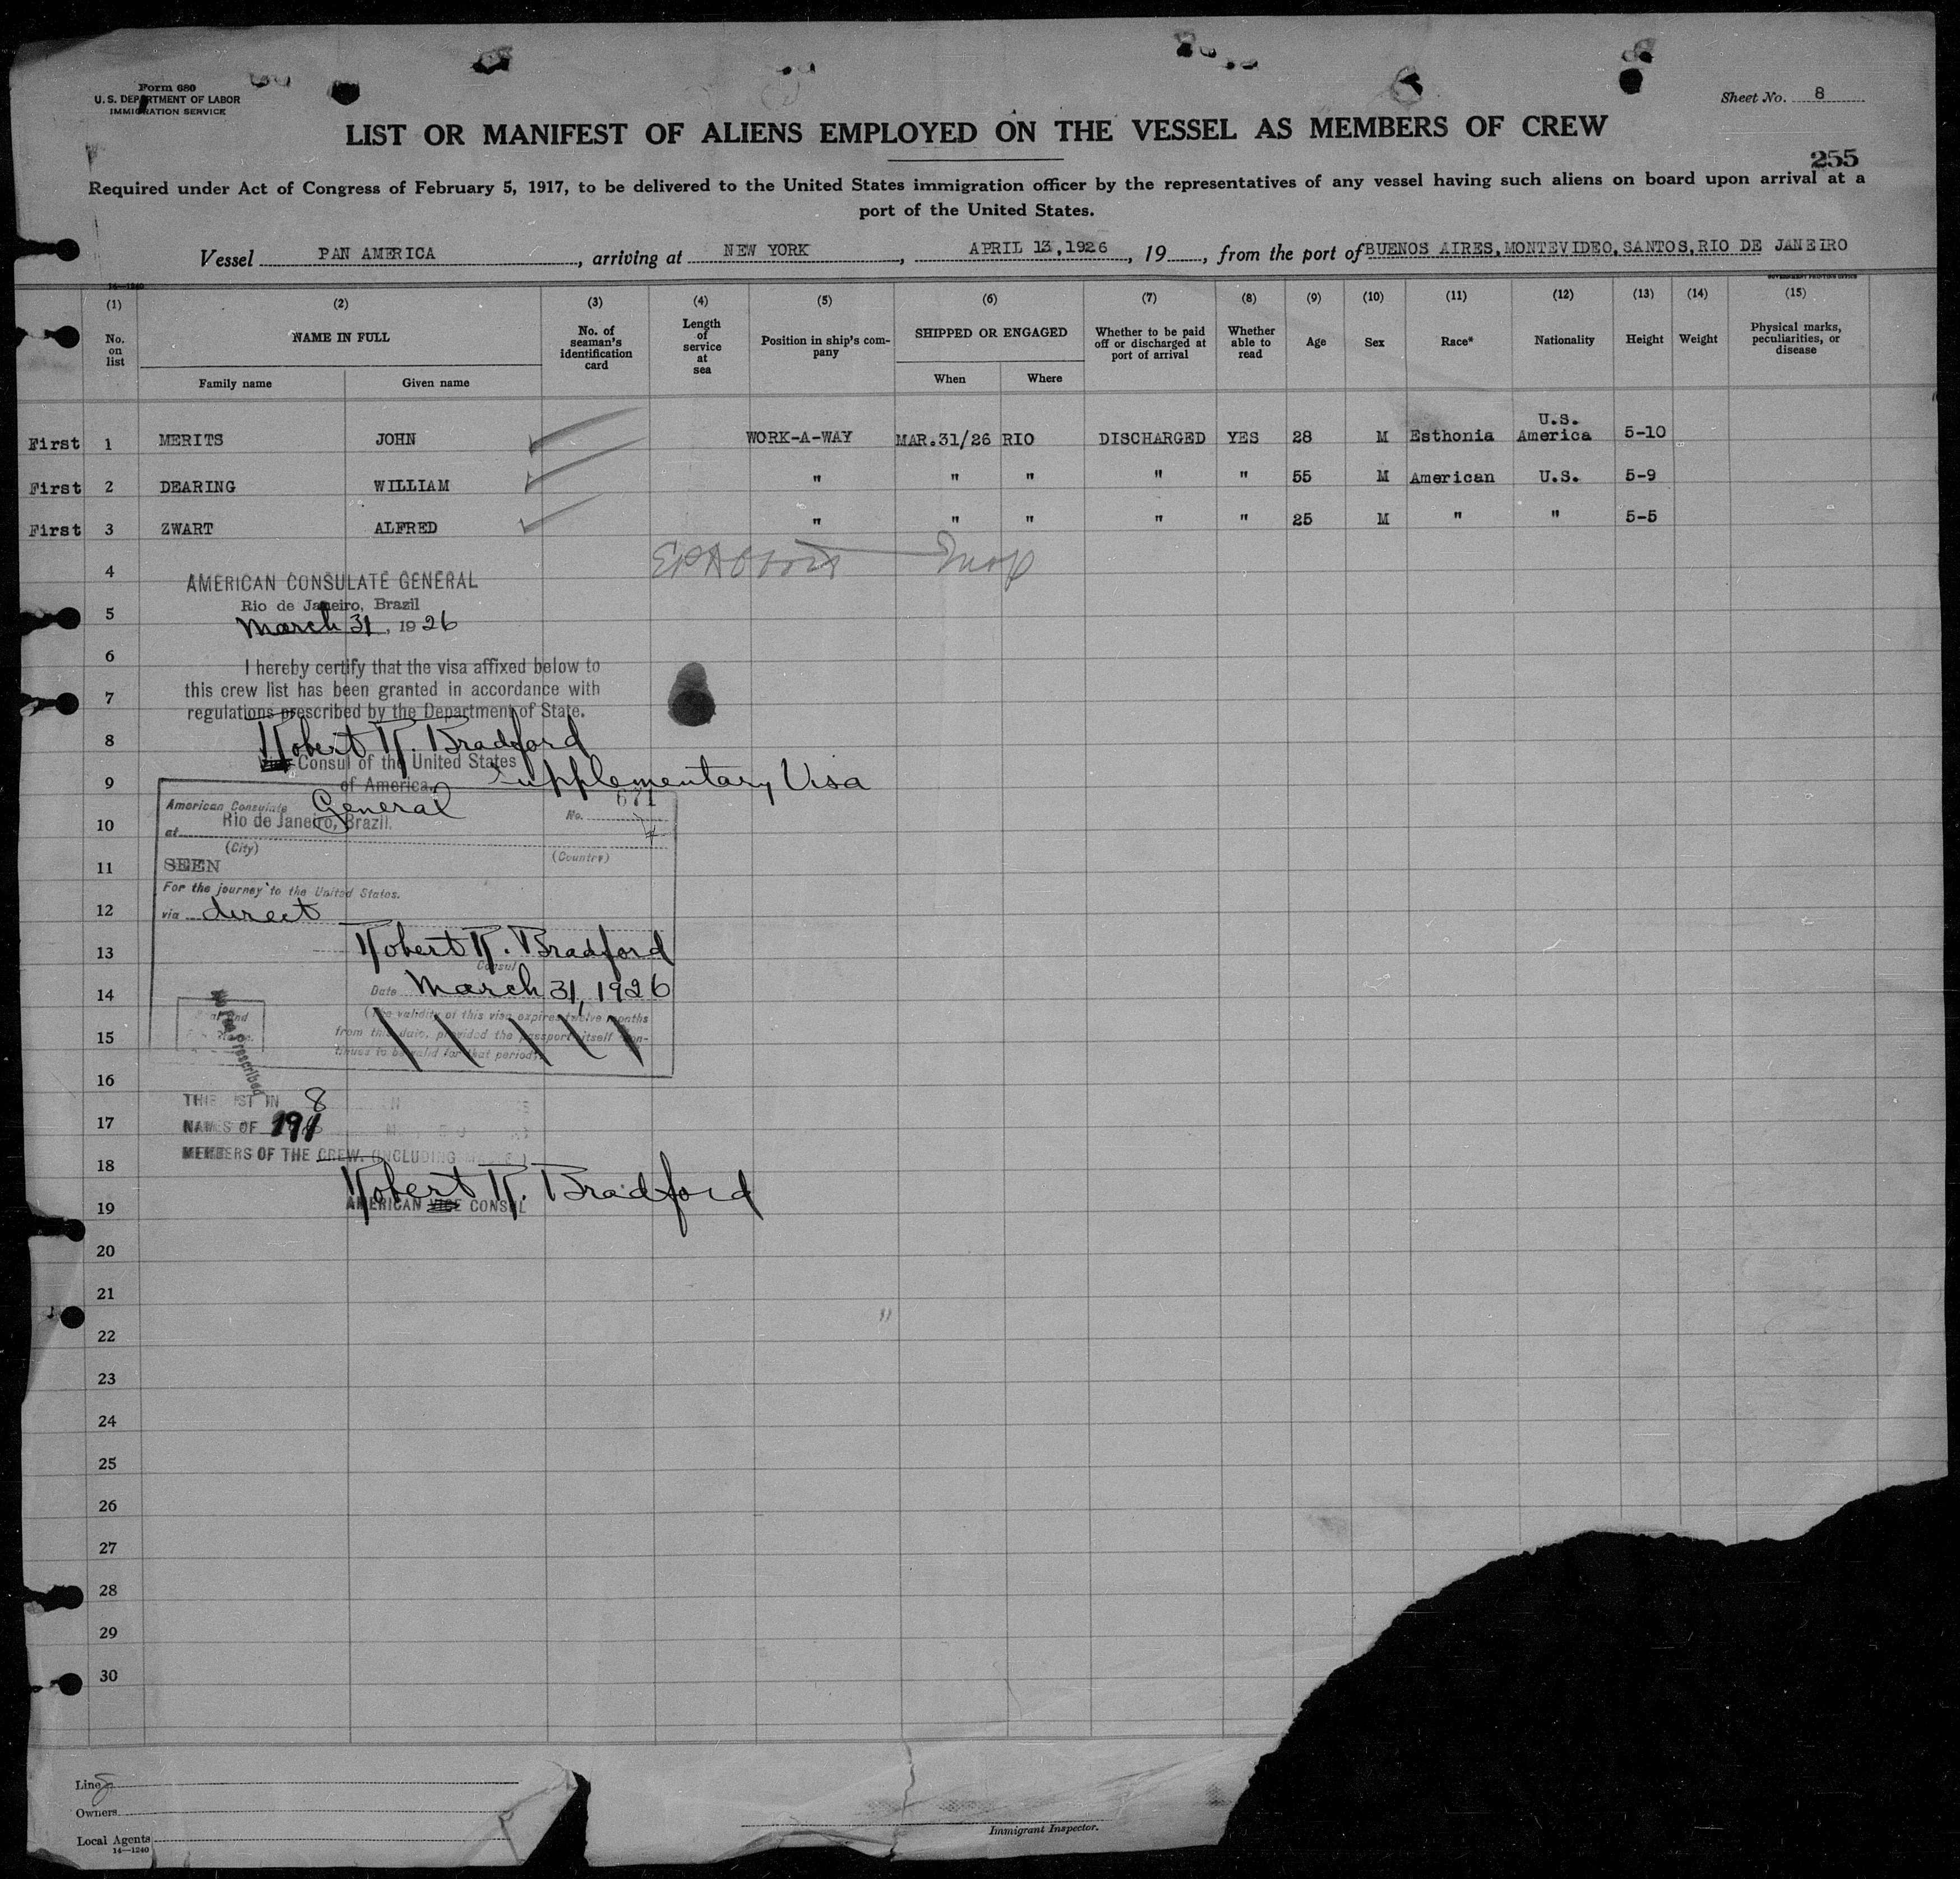 Form 680
U. S. DEPARTMENT OF LABOR
IMMIGRATION SERVICE
Sheet No. 8
LIST OR MANIFEST OF ALIENS EMPLOYED ON THE VESSEL AS MEMBERS OF CREW
255
Required under Act of Congress of February 5, 1917, to be delivered to the United States immigration officer by the representatives of any vessel having such aliens on board upon arrival at a
port of the United States.
Vessel PAN AMERICA, arriving at NEW YORK, APRIL 13,1926, 19, from the port of BUENOS AIRES,MONTEVIDEO,SANTOS,RIO DE JANEIRO
14—1240
GOVERNMENT PRINTING OFFICE
(1) (2) (3) (4) (5) (6) (7) (8) (9) (10) (11) (12) (13) (14) (15)
No. on list
NAME IN FULL
Family name Given name
No. of seaman's identification card
Length of service at sea
Position in ship's company
SHIPPED OR ENGAGED
When Where
Whether to be paid off or discharged at port of arrival
Whether able to read
Age
Sex
Race*
Nationality
Height
Weight
Physical marks, peculiarities, or disease
First 1 MERITS JOHN WORK-A-WAY MAR.31/26 RIO DISCHARGED YES 28 M Esthonia U.S. America 5-10
First 2 DEARING WILLIAM " " " " " 55 M American U.S. 5-9
First 3 ZWART ALFRED " " " " " 25 M " " 5-5
4
AMERICAN CONSULATE GENERAL
Rio de Janeiro, Brazil
5
March 31, 1926
6
I hereby certify that the visa affixed below to
this crew list has been granted in accordance with
7
regulations prescribed by the Department of State.
8
Robert R. Bradford
Consul of the United States
of America.
Supplementary Visa
9
General
American Consulate
No. 671
10
at Rio de Janeiro, Brazil.
(City) (Country)
11
SEEN
For the journey to the United States.
12
via direct
13
Robert R. Bradford
Consul
14
Date March 31, 1926
(The validity of this visa expires twelve months
15
from this date, provided the passport itself con-
tinues to be valid for that period)
No Fee Prescribed
16
THIS LIST IN 8
17
NAMES OF 191
MEMBERS OF THE CREW. (INCLUDING MASTER)
18
Robert R. Bradford
19
AMERICAN VICE CONSUL
20
21
22
23
24
25
26
27
28
29
30
Line
Owners
Local Agents
14—1240
Immigrant Inspector.